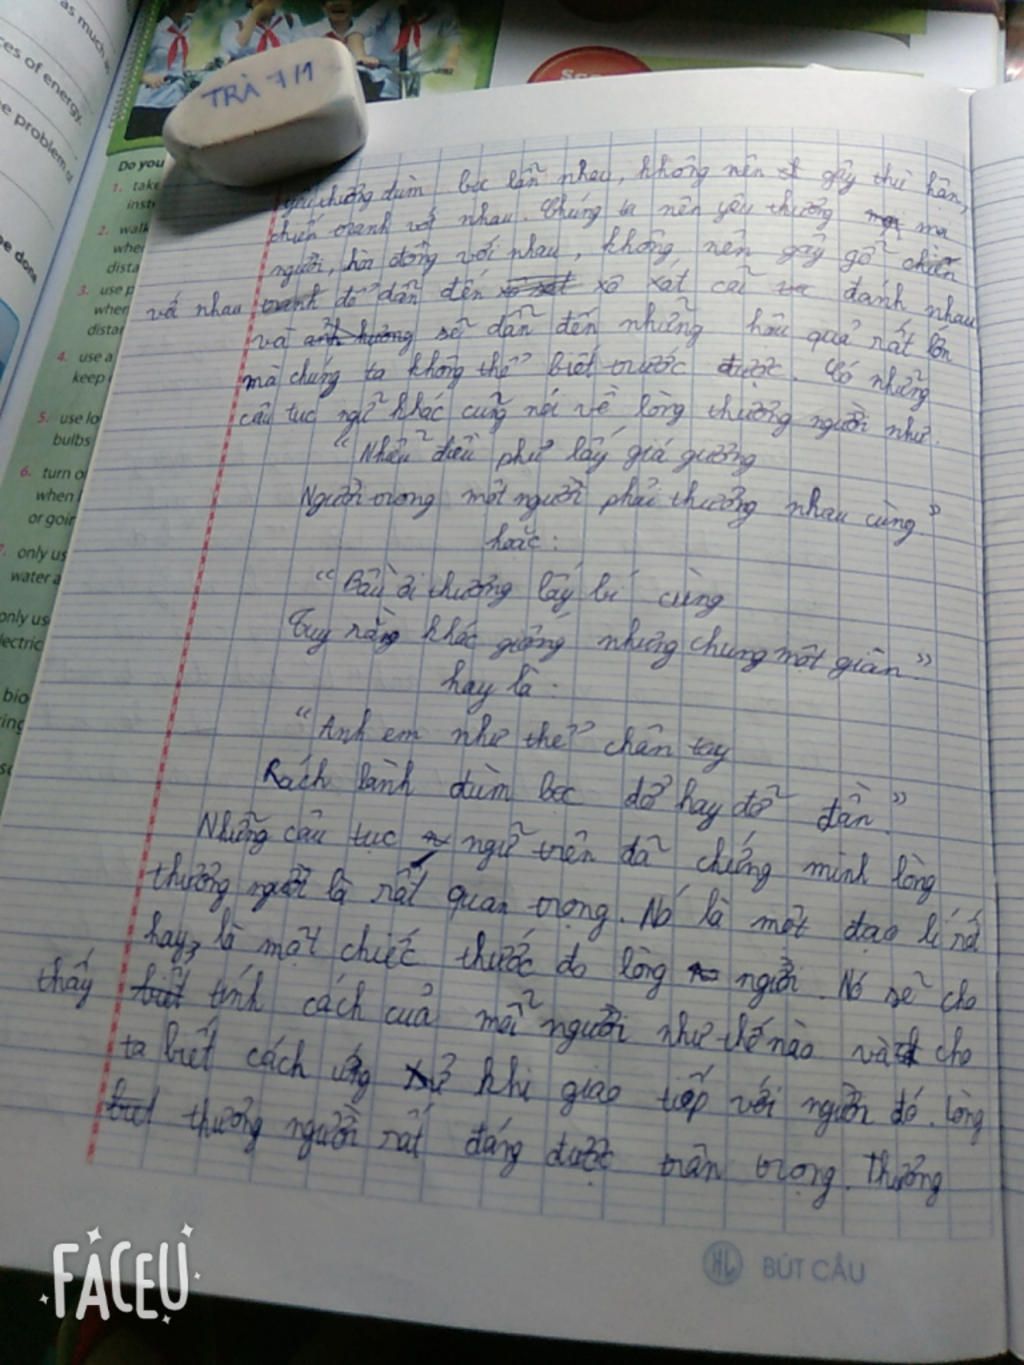 as much
ces of energy.
e problem of
be done
TRÀ 7/1
Do you
1. take
inst
2. walk
whe
dista
3. use p
when
distar
4. use a
keep
5. use lo
bulbs
6. turn o
when
or goin
7. only us
water a
only us
lectric
bio
yêu thương đùm bọc lẫn nhau, không nên gây thù hận,
chiến tranh với nhau. Chúng ta nên yêu thương mọi
người, hòa đồng với nhau, không nên gây gổ chiến
với nhau tranh đó dẫn đến xô xát cãi đánh nhau
và ảnh hưởng sẽ dẫn đến những hậu quả rất lớn
mà chúng ta không thể biết trước được. Có những
câu tục ngữ khác cũng nói về lòng thương người như:
"Nhiễu điều phủ lấy giá gương
Người trong một người phải thương nhau cùng"
hoặc:
"Bầu ơi thương lấy bí cùng
Tuy rằng khác giống nhưng chung một giàn."
hay là:
"Anh em như thể chân tay
Rách lành đùm bọc dở hay đỡ đần."
Những câu tục ngữ trên đã chứng minh lòng
thương người là rất quan trọng. Nó là một đạo lí rất
hay, là một chiếc thước đo lòng người. Nó sẽ cho
thấy biết tính cách của mỗi người như thế nào và cho
ta biết cách ứng xử khi giao tiếp với người đó. Lòng
thương người rất đáng được trân trọng. Thương
HL BÚT CÂU
FACEU